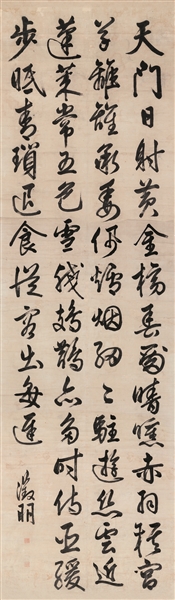 天門日射黃金榜春殿晴曛赤羽旗宮
草離離承委佩爐烟細〻駐遊絲雲近
蓬萊常五色雪殘鳷鵲亦多時侍臣緩
步歸青瑣退食從容出每遲
徵明